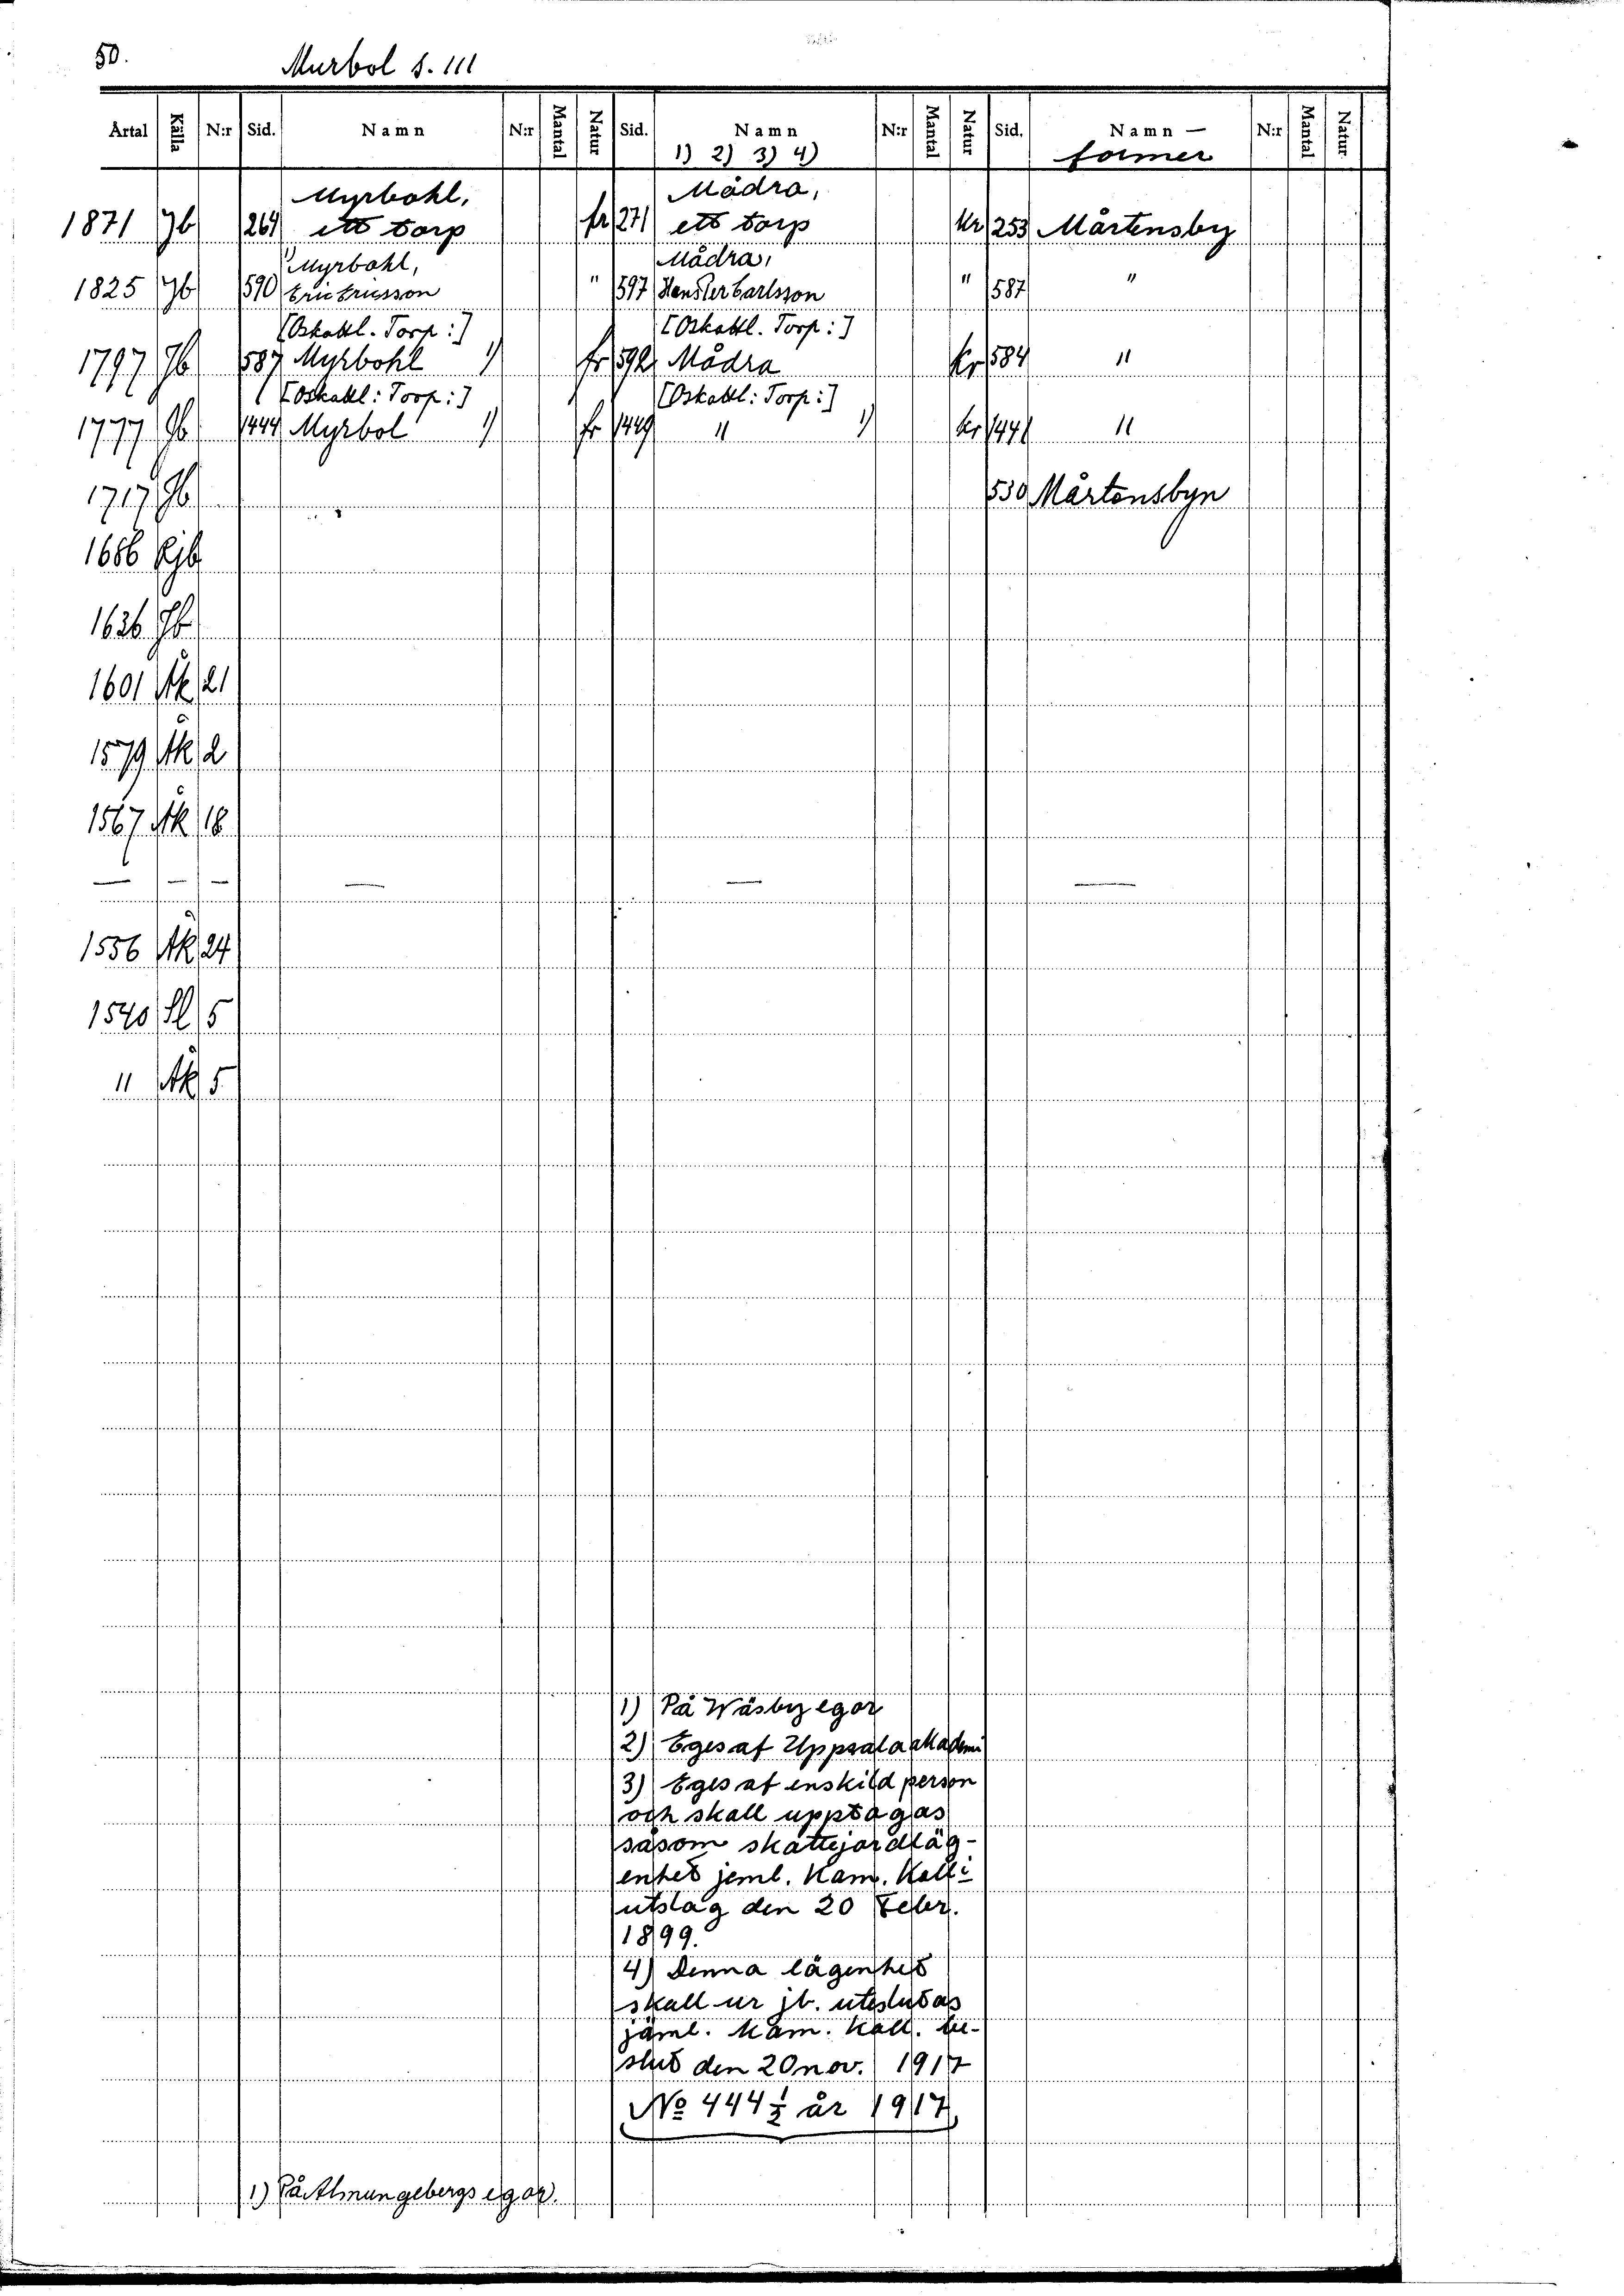 50.
Murbol s. 111
Årtal Källa N:r Sid. Namn N:r Mantal Natur Sid. Namn N:r Mantal Natur Sid. Namn — N:r Mantal Natur
1) 2) 3) 4) former
Myrbohl, Mådra,
1871 Jb 264 ett torp fr 271 ett torp kr 253 Mårtensby
1) Myrbohl, Mådra,
1825 Jb 590 Eric Ericsson " 597 Carlsson " 587 "
[Oskattl. Torp:] [Oskattl. Torp:]
1797 Jb 587 Myrbohl 1) fr 592 Mådra Kr 584 "
[Oskattl: Torp:] [Oskattl: Torp:]
1777 Jb 1444 Myrbol 1) fr 1449 " 1) kr 1441 "
1717 Jb 530 Mårtensbyn
1686 Rjb
1636 Jb
1601 Åk 21
1579 Åk 2
1567 Åk 18
— — — — — —
1556 Åk 24
1540 Sl 5
" Åk 5
1) På Wäsby egor
2) Eges af Uppsala akademi
3) Eges af enskild person
och skall upptagas
såsom skattejordläg-
enhet jeml. Kam. Koll:
utslag den 20 Febr.
1899.
4) Denna lägenhet
skall ur jb. uteslutas
jäml. Kam. Koll. be-
slut den 20 nov. 1917
No 444 1/2 år 1917
1) På Almungebergs egor.